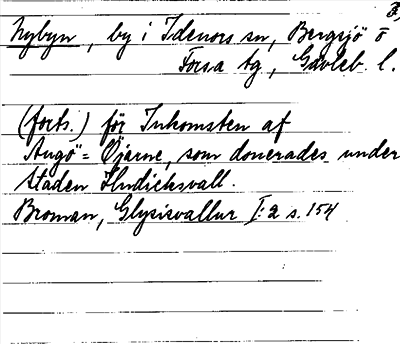 3,
Nybyn, by i Idenors sn, Bergsjö o
Forsa tg, Gävleb. l.
(forts.) för Inkomsten af
Augö"= Öjarne, som donerades under
staden Hudichsvall.
Broman, Glysisvallur I:2 s. 154